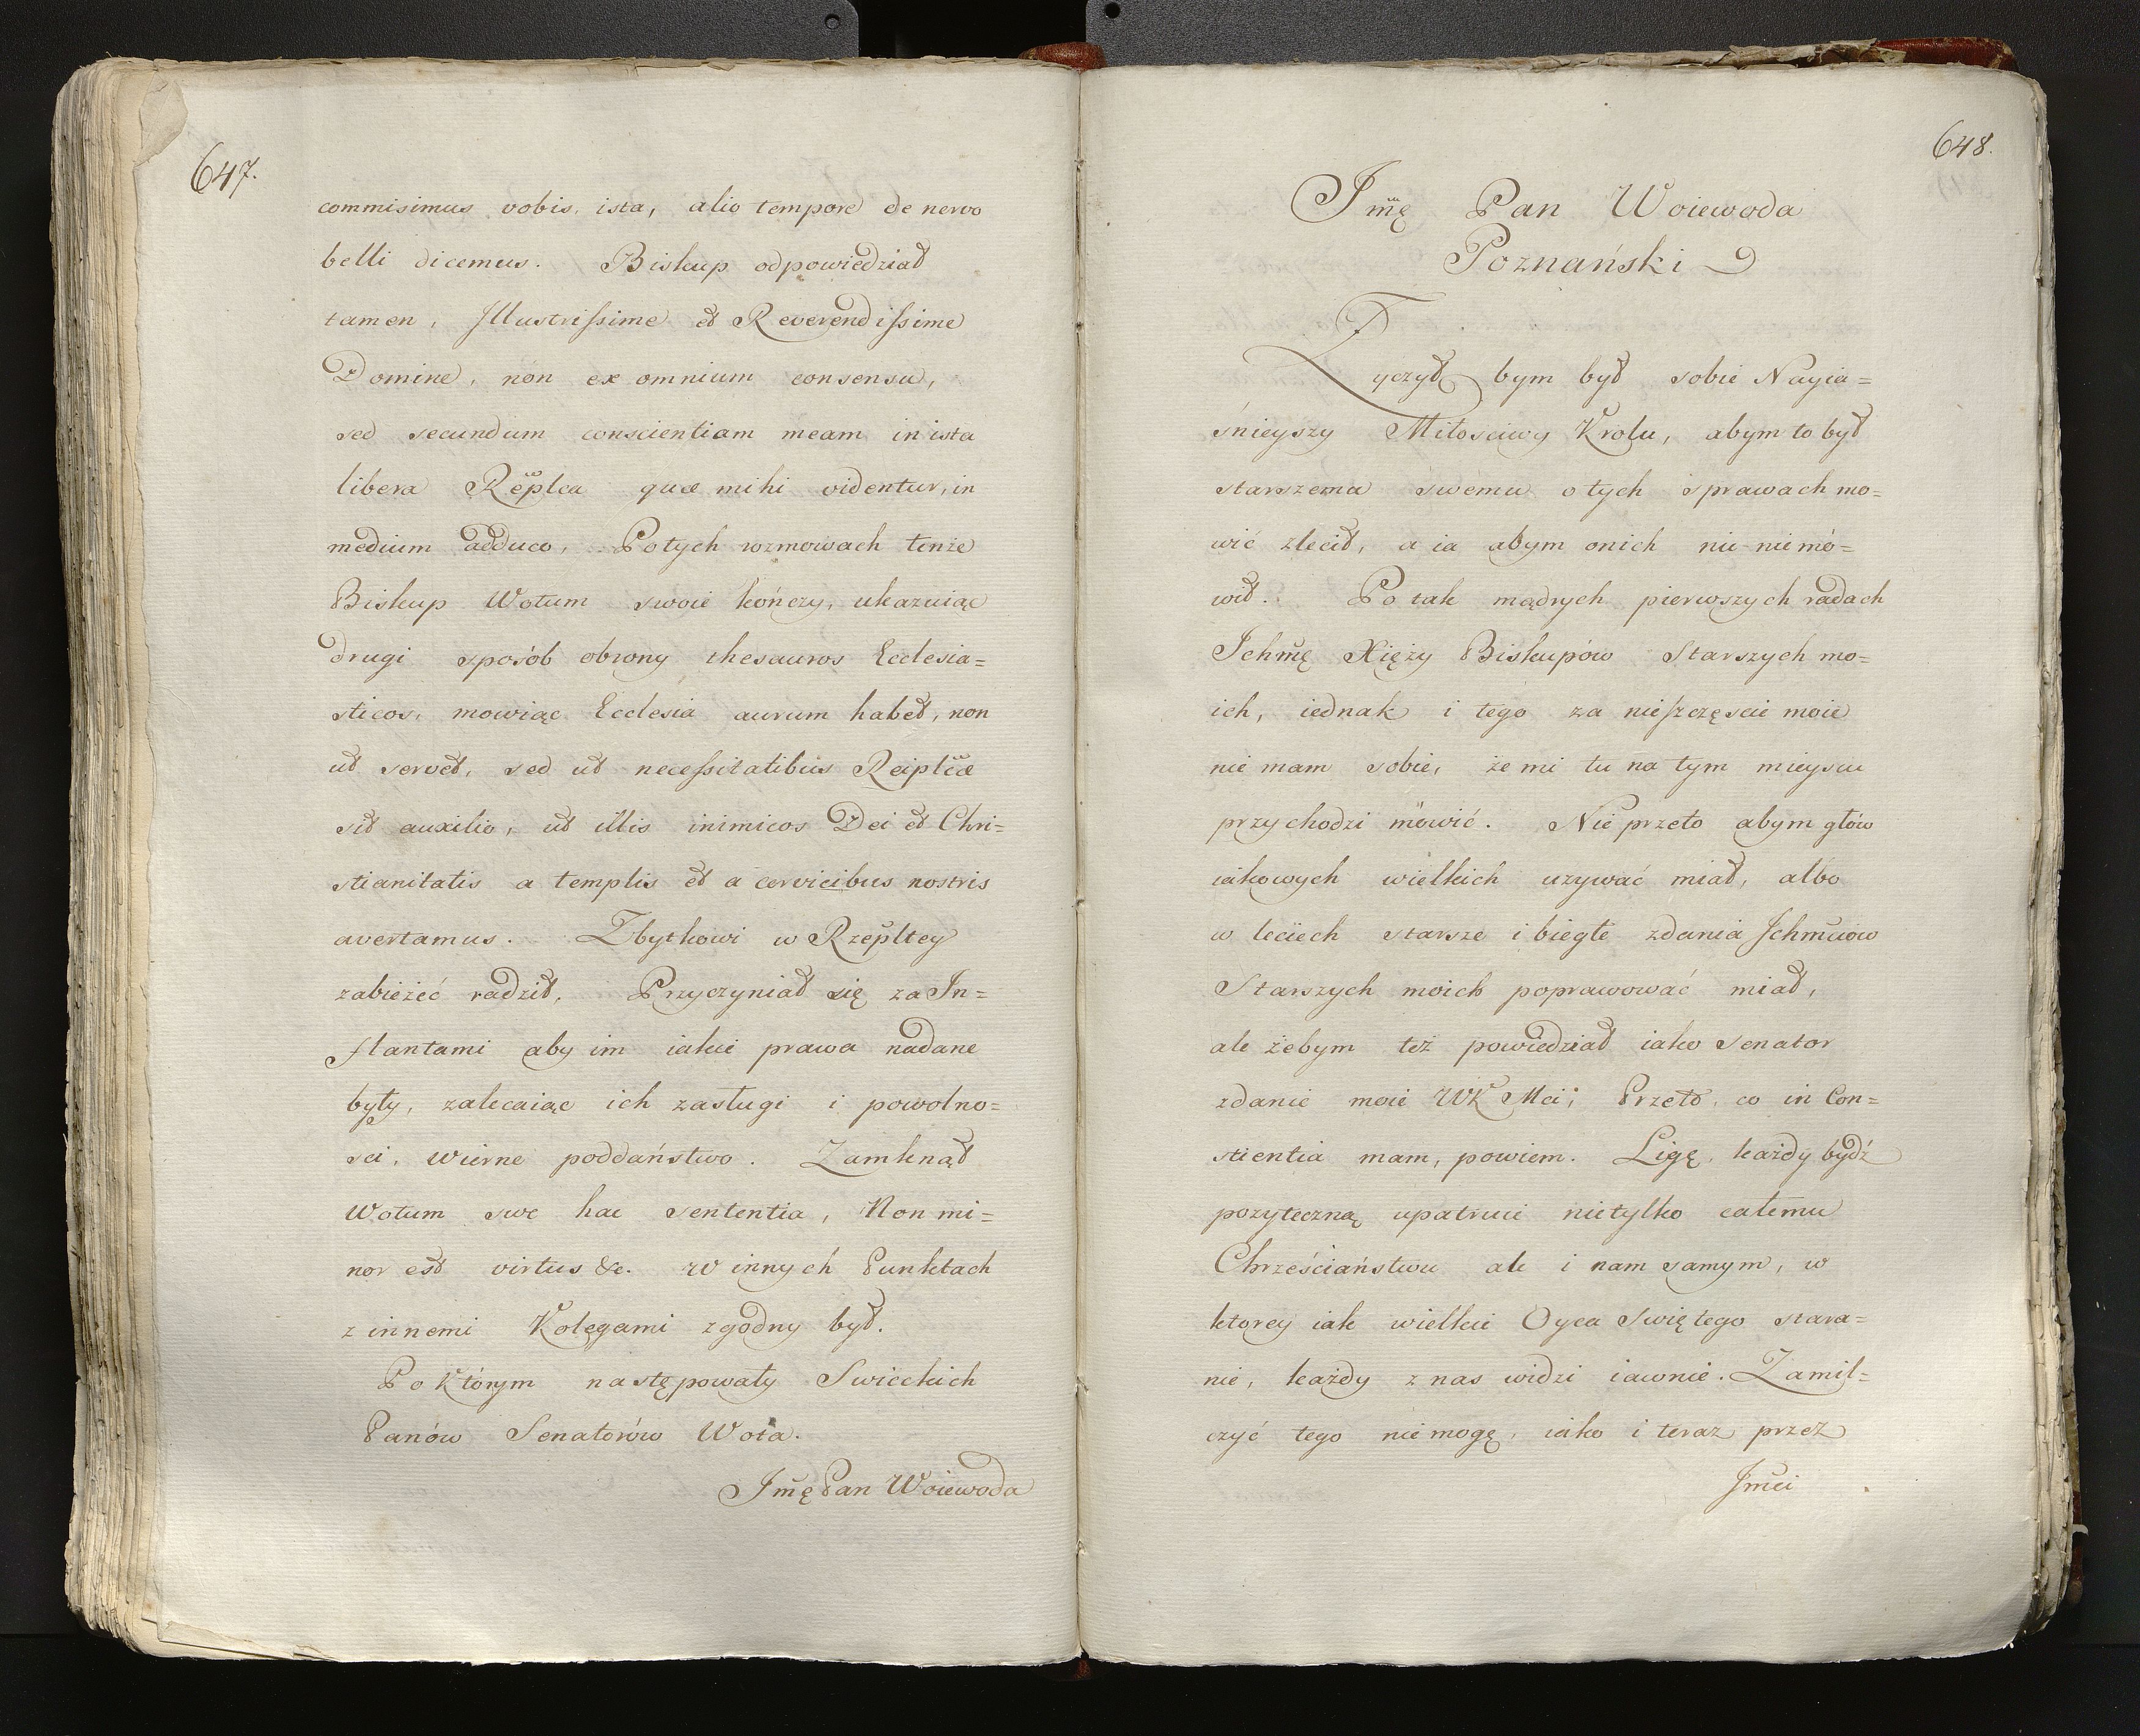 647.
commisimus vobis, ista, alio tempore de nervo
belli dicemus. Biskup odpowiedział
tamen, Illustrissime et Reverendissime
Domine, non ex omnium consensu,
sed secundum conscientiam meam in ista
libera Replca quæ mihi videntur, in
medium adduco, Po tych rozmowach tenże
Biskup Wotum swoie kończy, ukazuiąc
drugi sposób obrony thesauros Ecclesia=
sticos, mowiąc Ecclesia aurum habet, non
ut servet, sed ut necessitatibus Reiplcæ
sit auxilio, ut illis inimicos Dei et Chri=
stianitatis a templis et a cervicibus nostris
avertamus. Zbytkowi w Rzepltey
zabieżeć radził, Przyczyniał się za In=
flantami aby im iakie prawa nadane
były, zalecaiąc ich zasługi i powolno=
sci, wierne poddaństwo. Zamknął
Wotum swe hac sententia, Non mi=
nor est virtus &c. W innych Punktach
z innemi Kolegami zgodny był.
Po którym następowały Swieckich
Panów Senatorów Wota.
Jmę Pan Woiewoda
648.
Jmę Pan Woiewoda
Poznański
Zyczył bym był sobie Nayia=
śnieyszy Miłosciwy Krolu, abym to był
starszemu swemu o tych sprawach mo=
wić zlecił, a ia abym o nich nic nie mó=
wił. Po tak mądrych pierwszych radach
Ichmę Xięży Biskupów Starszych mo=
ich, iednak i tego za nieszczęscie moie
nie mam sobie, że mi tu na tym mieyscu
przychodzi mówić. Nie przeto abym głów
iakowych wielkich uzywać miał, albo
w leciech starsze i biegłe zdania Ichmciow
Starszych moich poprawować miał,
ale żebym też powiedział iako Senator
zdanie moie WK Mci; Przeto co in Con=
stientia mam, powiem. Ligę każdy bydź
pozyteczną upatruie nietylko całemu
Chrześciaństwu ale i nam samym, w
ktorey iak wielkie Oyca Swiętego stara=
nie, każdy z nas widzi iawnie. Zamil=
czyć tego nie mogę, iako i teraz przez
Jmci